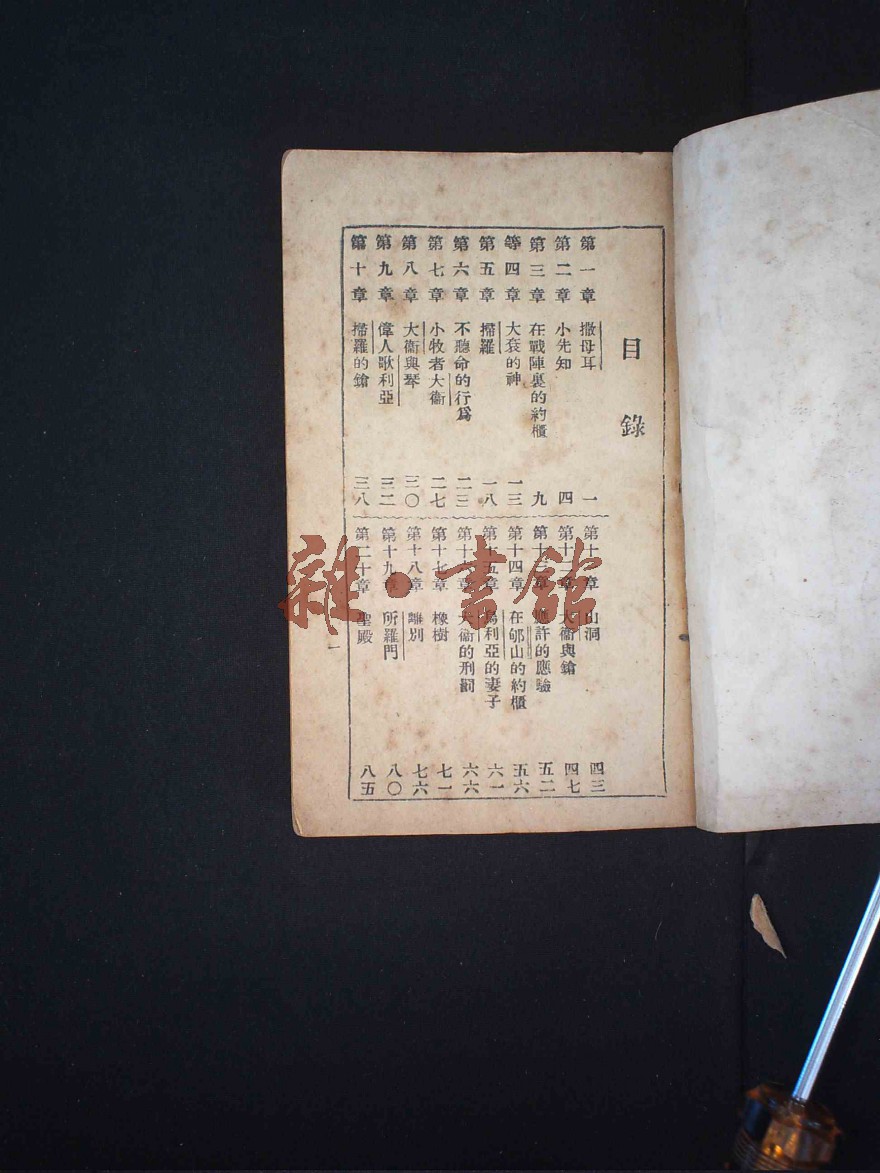 目錄
第一章 撒母耳 一
第二章 小先知 四
第三章 在戰陣裏的約櫃 九
第四章 大袞的神 一三
第五章 掃羅 一八
第六章 不聽命的行爲 二三
第七章 小牧者大衞 二七
第八章 大衞與琴 三〇
第九章 偉人歌利亞 三二
第十章 掃羅的鎗 三八
第十一章 山洞 四三
第十二章 大衞與鎗 四七
第十三章 應許的應驗 五二
第十四章 在郇山的約櫃 五六
第十五章 烏利亞的妻子 六一
第十六章 大衞的刑罰 六六
第十七章 橡樹 七一
第十八章 離別 七六
第十九章 所羅門 八〇
第二十章 聖殿 八五
一
雜·書館